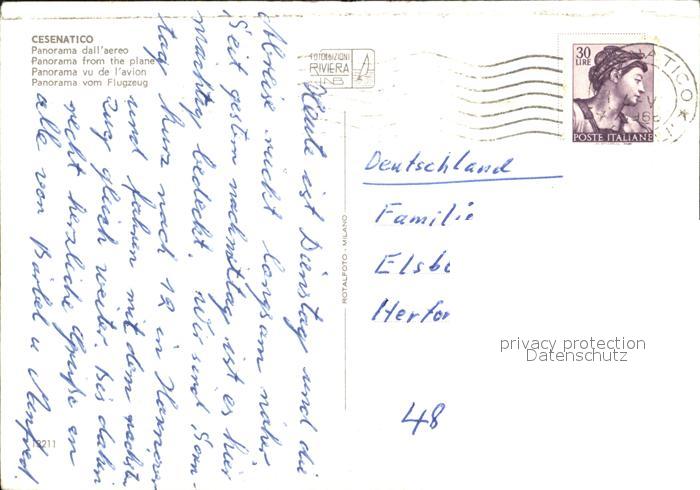 CESENATICO
Panorama dall'aereo
Panorama from the plane
Panorama vu de l'avion
Panorama vom Flugzeug
FOTOEDIZIONI
RIVIERA
30
LIRE
POSTE ITALIANE
Heute ist Dienstag und die
Abreise rückt langsam näher.
Seit gestern nachmittag ist es hier
mächtig bedeckt. Wir sind Sonn-
tag kurz nach 12 in Hannover
und fahren mit dem nächsten
Zug gleich weiter. Bis dahin
recht herzliche Grüße an
alle von Bärbel u Manfred.
ROTALFOTO - MILANO
Deutschland
Familie
Elsbe
Herfor
48
privacy protection
Datenschutz
13211